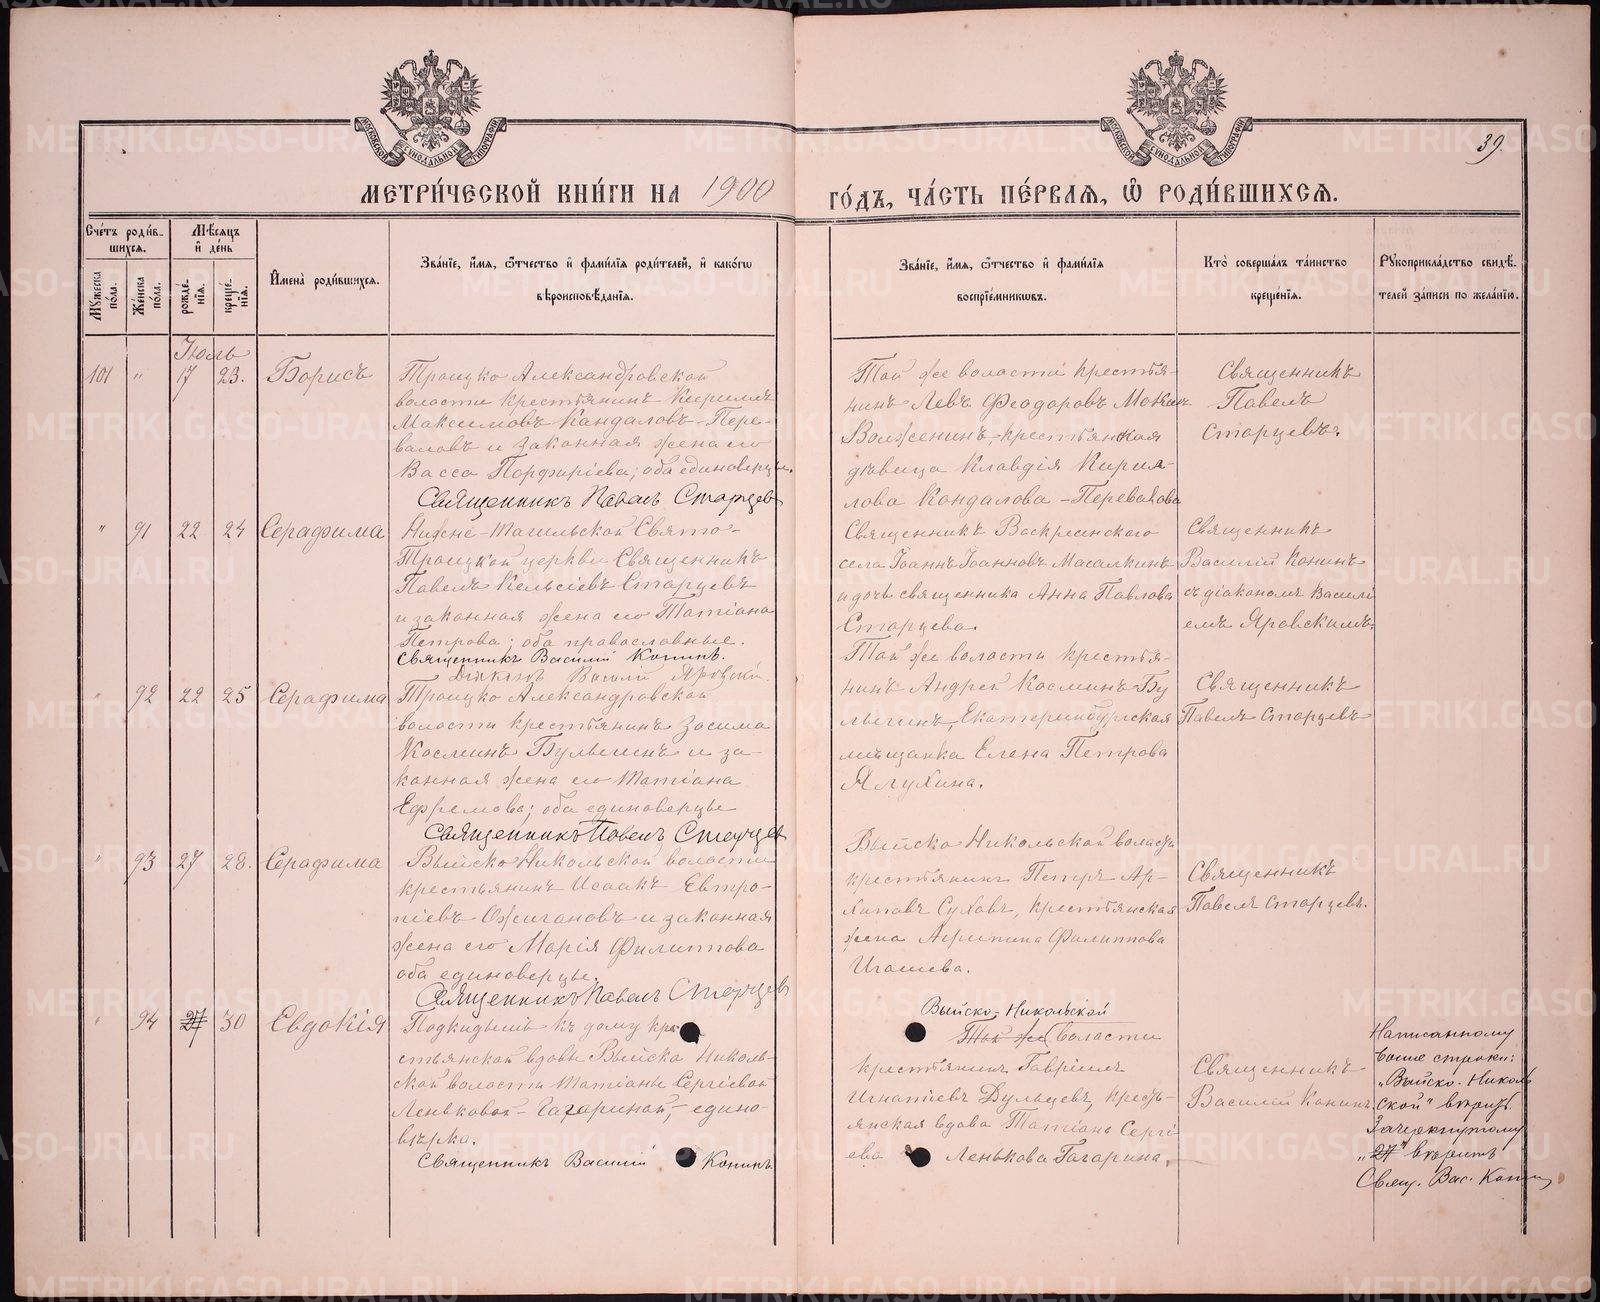 МЕТРИ́ЧЕСКОЙ КНИ́ГИ НА 1900
ГО́ДЪ, ЧА́СТЬ ПЕ́РВАЯ, Ѿ РОДИ́ВШИХСЯ.
39.
МОСКОВСКОЙ СѴНОДАЛЬНОЙ ТИПОГРАФІИ
МОСКОВСКОЙ СѴНОДАЛЬНОЙ ТИПОГРАФІИ
Сче́тъ роди́в-
шихся.
Мужеска по́ла.
Же́нска по́ла.
Мѣ́сяцъ
и де́нь
рожде́нїя.
креще́нїя.
Имена̀ роди́вшихся.
Зва́нїе, и́мя, ѻ҆́тчество и фами́лїя роди́телей, и како́гѡ
вѣроисповѣ́данїя.
Зва́нїе, и́мя, ѻ҆́тчество и фами́лїя
воспрїе́мниковъ.
Кто̀ соверша́лъ та́инство
креще́нїя.
Рꙋкоприкла́дство свидѣ́-
телей за́писи по жела́нїю.
Іюль
101 " 17 23. Борисъ
Троицко Александровской
волости крестьянинъ Кириллъ
Максимовъ Кандаловъ-Пере-
валовъ и законная жена его
Васса Порфиріева; оба единоверцы.
Священникъ Павелъ Старцев
Той же волости крестья-
нинъ Левъ Феодоровъ
Волженинъ, крестьянская
дѣвица Клавдія Кирил-
лова Кондалова-Перевалова
Священникъ
Павелъ
Старцевъ.
" 91 22 24 Серафима
Нижне-Тагильской Свято-
Троицкой церкви Священникъ
Павелъ Кельсіевъ Старцевъ
и законная жена его Татіана
Петрова; оба православные.
Священникъ Василій Конинъ.
Діаконъ Василій Яровскій.
Священникъ Воскресенскаго
села Іоаннъ Іоанновъ Масалкинъ
и дочь священника Анна Павлова
Старцева.
Священникъ
Василій Конинъ
съ діакономъ Василі-
емъ Яровскимъ.
" 92 22 25 Серафима
Троицко Александровской
волости крестьянинъ Зосима
Косминъ Булыгинъ и за-
конная жена его Татіана
Ефремова; оба единоверцы
Священникъ Павелъ Старцев
Той же волости крестья-
нинъ Андрей Косминъ Бу-
лыгинъ, Екатеринбургская
мѣщанка Елена Петрова
Ялухина.
Священникъ
Павелъ Старцевъ
" 93 27 28. Серафима
Выйско Никольской волости
крестьянинъ Исаакъ Евтро-
піевъ Ожигановъ и законная
жена его Марія Филиппова
оба единоверцы.
Священникъ Павелъ Старцев
Выйско Никольской волости
крестьянинъ Петръ Ар-
хиповъ Суховъ, крестьянская
жена Агрипина Филиппова
Игошева.
Священникъ
Павелъ Старцевъ.
" 94 27 30 Евдокія
Подкидышъ къ дому кре-
стьянской вдовы Выйско Николь-
ской волости Татіаны Сергіевой
Леньковой-Гагариной,-едино-
вѣрка.
Священникъ Василій Конинъ.
Выйско-Никольской
Той же волости
крестьянинъ Гавріилъ
Игнатіевъ Дульцевъ, кресть-
янская вдова Татіана Сергі-
ева Ленькова Гагарина.
Священникъ
Василій Конинъ.
Написанному
выше строки:
"Выйско-Николь
ской" вѣрить.
Зачеркнутому
"27" вѣрить
Свящ. Вас. Конин
METRIKI.GASO-URAL.RU